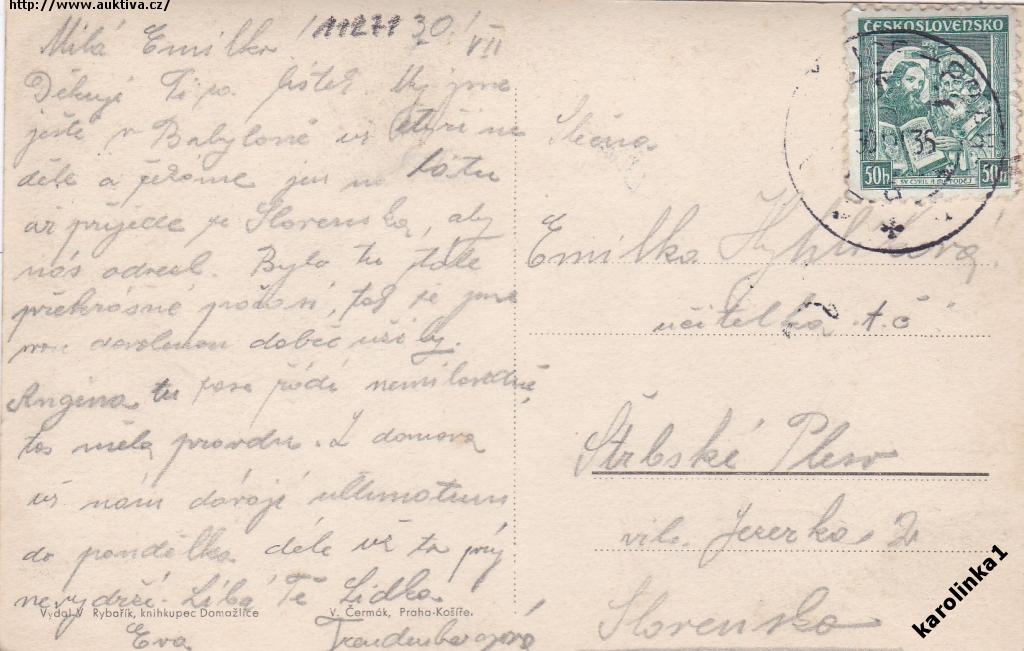 http://www.auktiva.cz/
Milá Emilko! 11271 30. VII
Děkuji Ti za lístek. My jsme
ještě v Babyloně už čtyři ne
děle a čekáme jen na tátu
až přijede ze Slovenska, aby
nás odvezl. Bylo tu stále
překrásné počasí, tak že jsme
dovolenou dobře užily.
Angina tu zase řádí nemilosrdně,
tos měla pravdu. Z domova
už nám dávají ultimatum
do pondělka, déle už to prý
nevydrží. Líbá Tě Lidka
Eva
Vydal V. Rybařík, knihkupec Domažlice
V. Čermák, Praha-Košíře.
ČESKOSLOVENSKO
50h 50h
SV. CYRIL A METODĚJ
30 35
Slečna
Emilka
učitelka t. č.
Štrbské Pleso
vila Jezerka 2
Slovensko
karolinka1